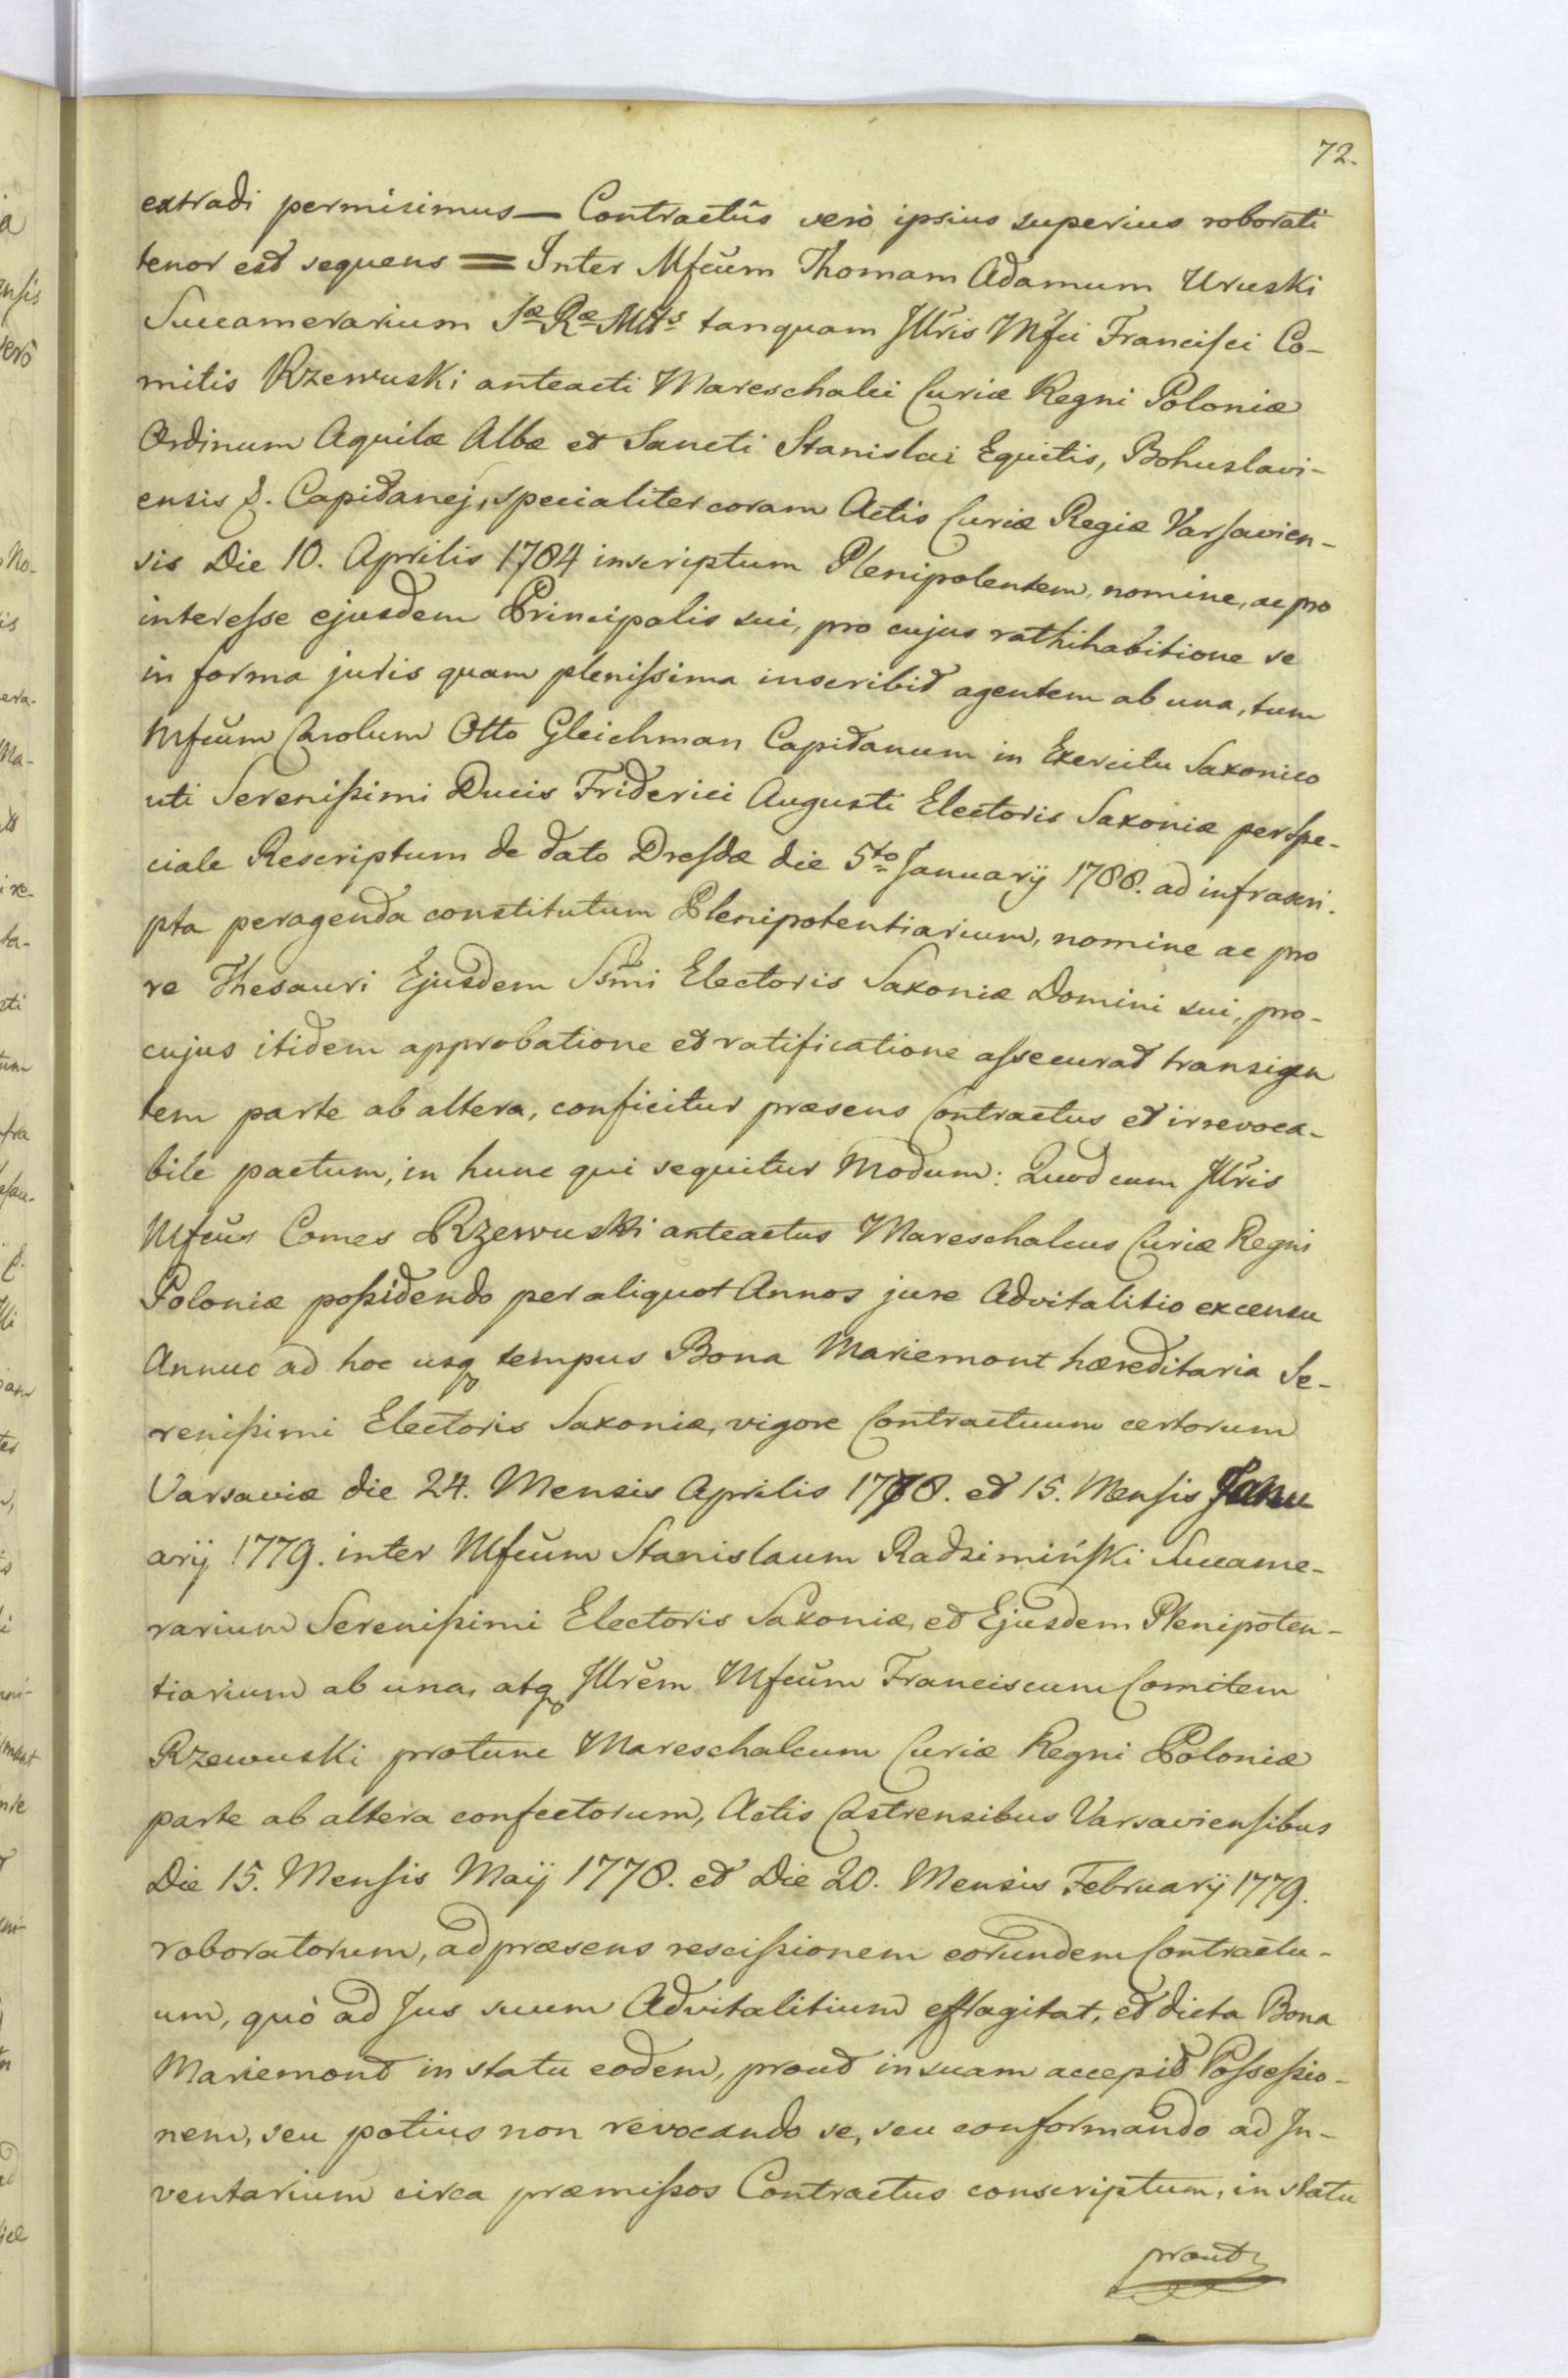 72.
extradi permisimus — Contractûs verò ipsius superius roborati
tenor est sequens = Inter Mfcum Thomam Adamum Uruski
Succamerarium Sæ Ræ Mtts tanquam Jllris Mfci Francisci Co-
mitis Rzewuski anteacti Mareschalci Curiæ Regni Poloniæ
Ordinum Aquilæ Albæ et Sancti Stanislai Equitis, Bohuslavi-
ensis &. Capitanej, specialiter coram Actis Curiæ Regiæ Varsavien-
sis Die 10. Aprilis 1784 inscriptum Plenipotentem, nomine, ac pro
interesse ejusdem Principalis sui, pro cujus rathihabitione se
in forma juris quam plenissima inscribit agentem ab una, tum
Mfcum Carolum Otto Gleichman Capitanum in Exercitu Saxonico
uti Serenissimi Ducis Friderici Augusti Electoris Saxoniæ per spe-
ciale Rescriptum de dato Dresdæ die 5to January 1788. ad infrascri-
pta peragenda constitutum Plenipotentiarium, nomine ac pro
re Thesauri Ejusdem Ssmi Electoris Saxoniæ Domini sui, pro-
cujus itidem approbatione et ratificatione assecurat transigen
tem parte ab altera, conficitur præsens Contractus et irrevoca-
bile pactum, in hunc qui sequitur Modum: Quod cum Jllris
Mfcus Comes Rzewuski anteactus Mareschalcus Curiæ Regni
Poloniæ possidendo per aliquot Annos jure Advitalitio ex censu
Annuo ad hoc usq tempus Bona Mariemont hæreditaria Se-
renissimi Electoris Saxoniæ, vigore Contractuum certorum
Varsaviæ die 24. Mensis Aprilis 1778. et 15. Mensis Janu
arij 1779. inter Mfcum Stanislaum Radzimiński Succame-
rarium Serenissimi Electoris Saxoniæ, et Ejusdem Plenipoten-
tiarium ab una, atq Jllrem Mfcum Franciscum Comitem
Rzewuski protunc Mareschalcum Curiæ Regni Poloniæ
parte ab altera confectorum, Actis Castrensibus Varsaviensibus
Die 15. Mensis Maij 1778. et Die 20. Mensis Februarij 1779.
roboratorum, ad præsens rescissionem eorundem Contractu-
um, quò ad Jus suum Advitalitium efflagitat, et dicta Bona
Mariemont in statu eodem, prout in suam accepit Possessio-
nem, seu potius non revocando se, seu conformando ad In-
ventarium circa præmissos Contractus conscriptum, in statu
prout